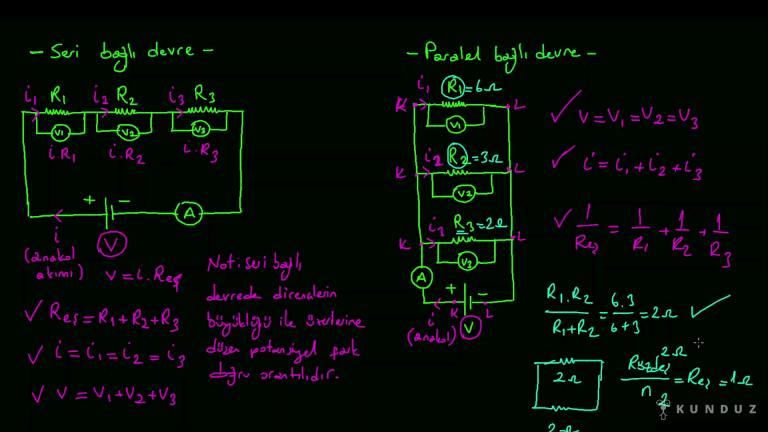 - Seri bağlı devre -
i₁ R₁ i₂ R₂ i₃ R₃
V₁ V₂ V₃
i.R₁ i.R₂ i.R₃
+ - A
i
(anakol akımı)
V
V = i.Reş
✓ Reş = R₁+R₂+R₃
✓ i = i₁ = i₂ = i₃
✓ V = V₁+V₂+V₃
Not: seri bağlı
devrede dirençlerin
büyüklüğü ile üzerlerine
düşen potansiyel fark
doğru orantılıdır.
- Paralel bağlı devre -
i₁ R₁=6Ω
K L
V₁
i₂ R₂=3Ω
K L
V₂
i₃ R₃=2Ω
K L
V₂
A
+ -
i K L
(anakol) V
✓ V=V₁=V₂=V₃
✓ i=i₁+i₂+i₃
✓ 1/Reş = 1/R₁ + 1/R₂ + 1/R₃
R₁.R₂/R₁+R₂ = 6.3/6+3 = 2Ω ✓
2Ω
2Ω
2Ω
n 2 = Reş = 1Ω
KUNDUZ